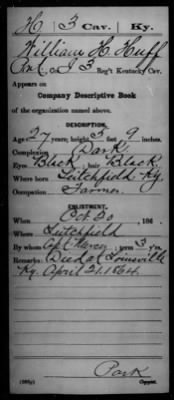 H | 3 Cav. | Ky.
William H. Huff
Co. I 3 Reg't Kentucky Cav.
Appears on
Company Descriptive Book
of the organization named above.
DESCRIPTION.
Age 27 years; height 5 feet 9 inches.
Complexion Dark
Eyes Black; hair Black
Where born Litchfield Ky.
Occupation Farmer
ENLISTMENT.
When Oct. 20, 186 .
Where Litchfield
By whom Capt. ; term 3 y'rs.
Remarks: Died at Louisville
Ky. April 21. 1864
Park
Copyist.